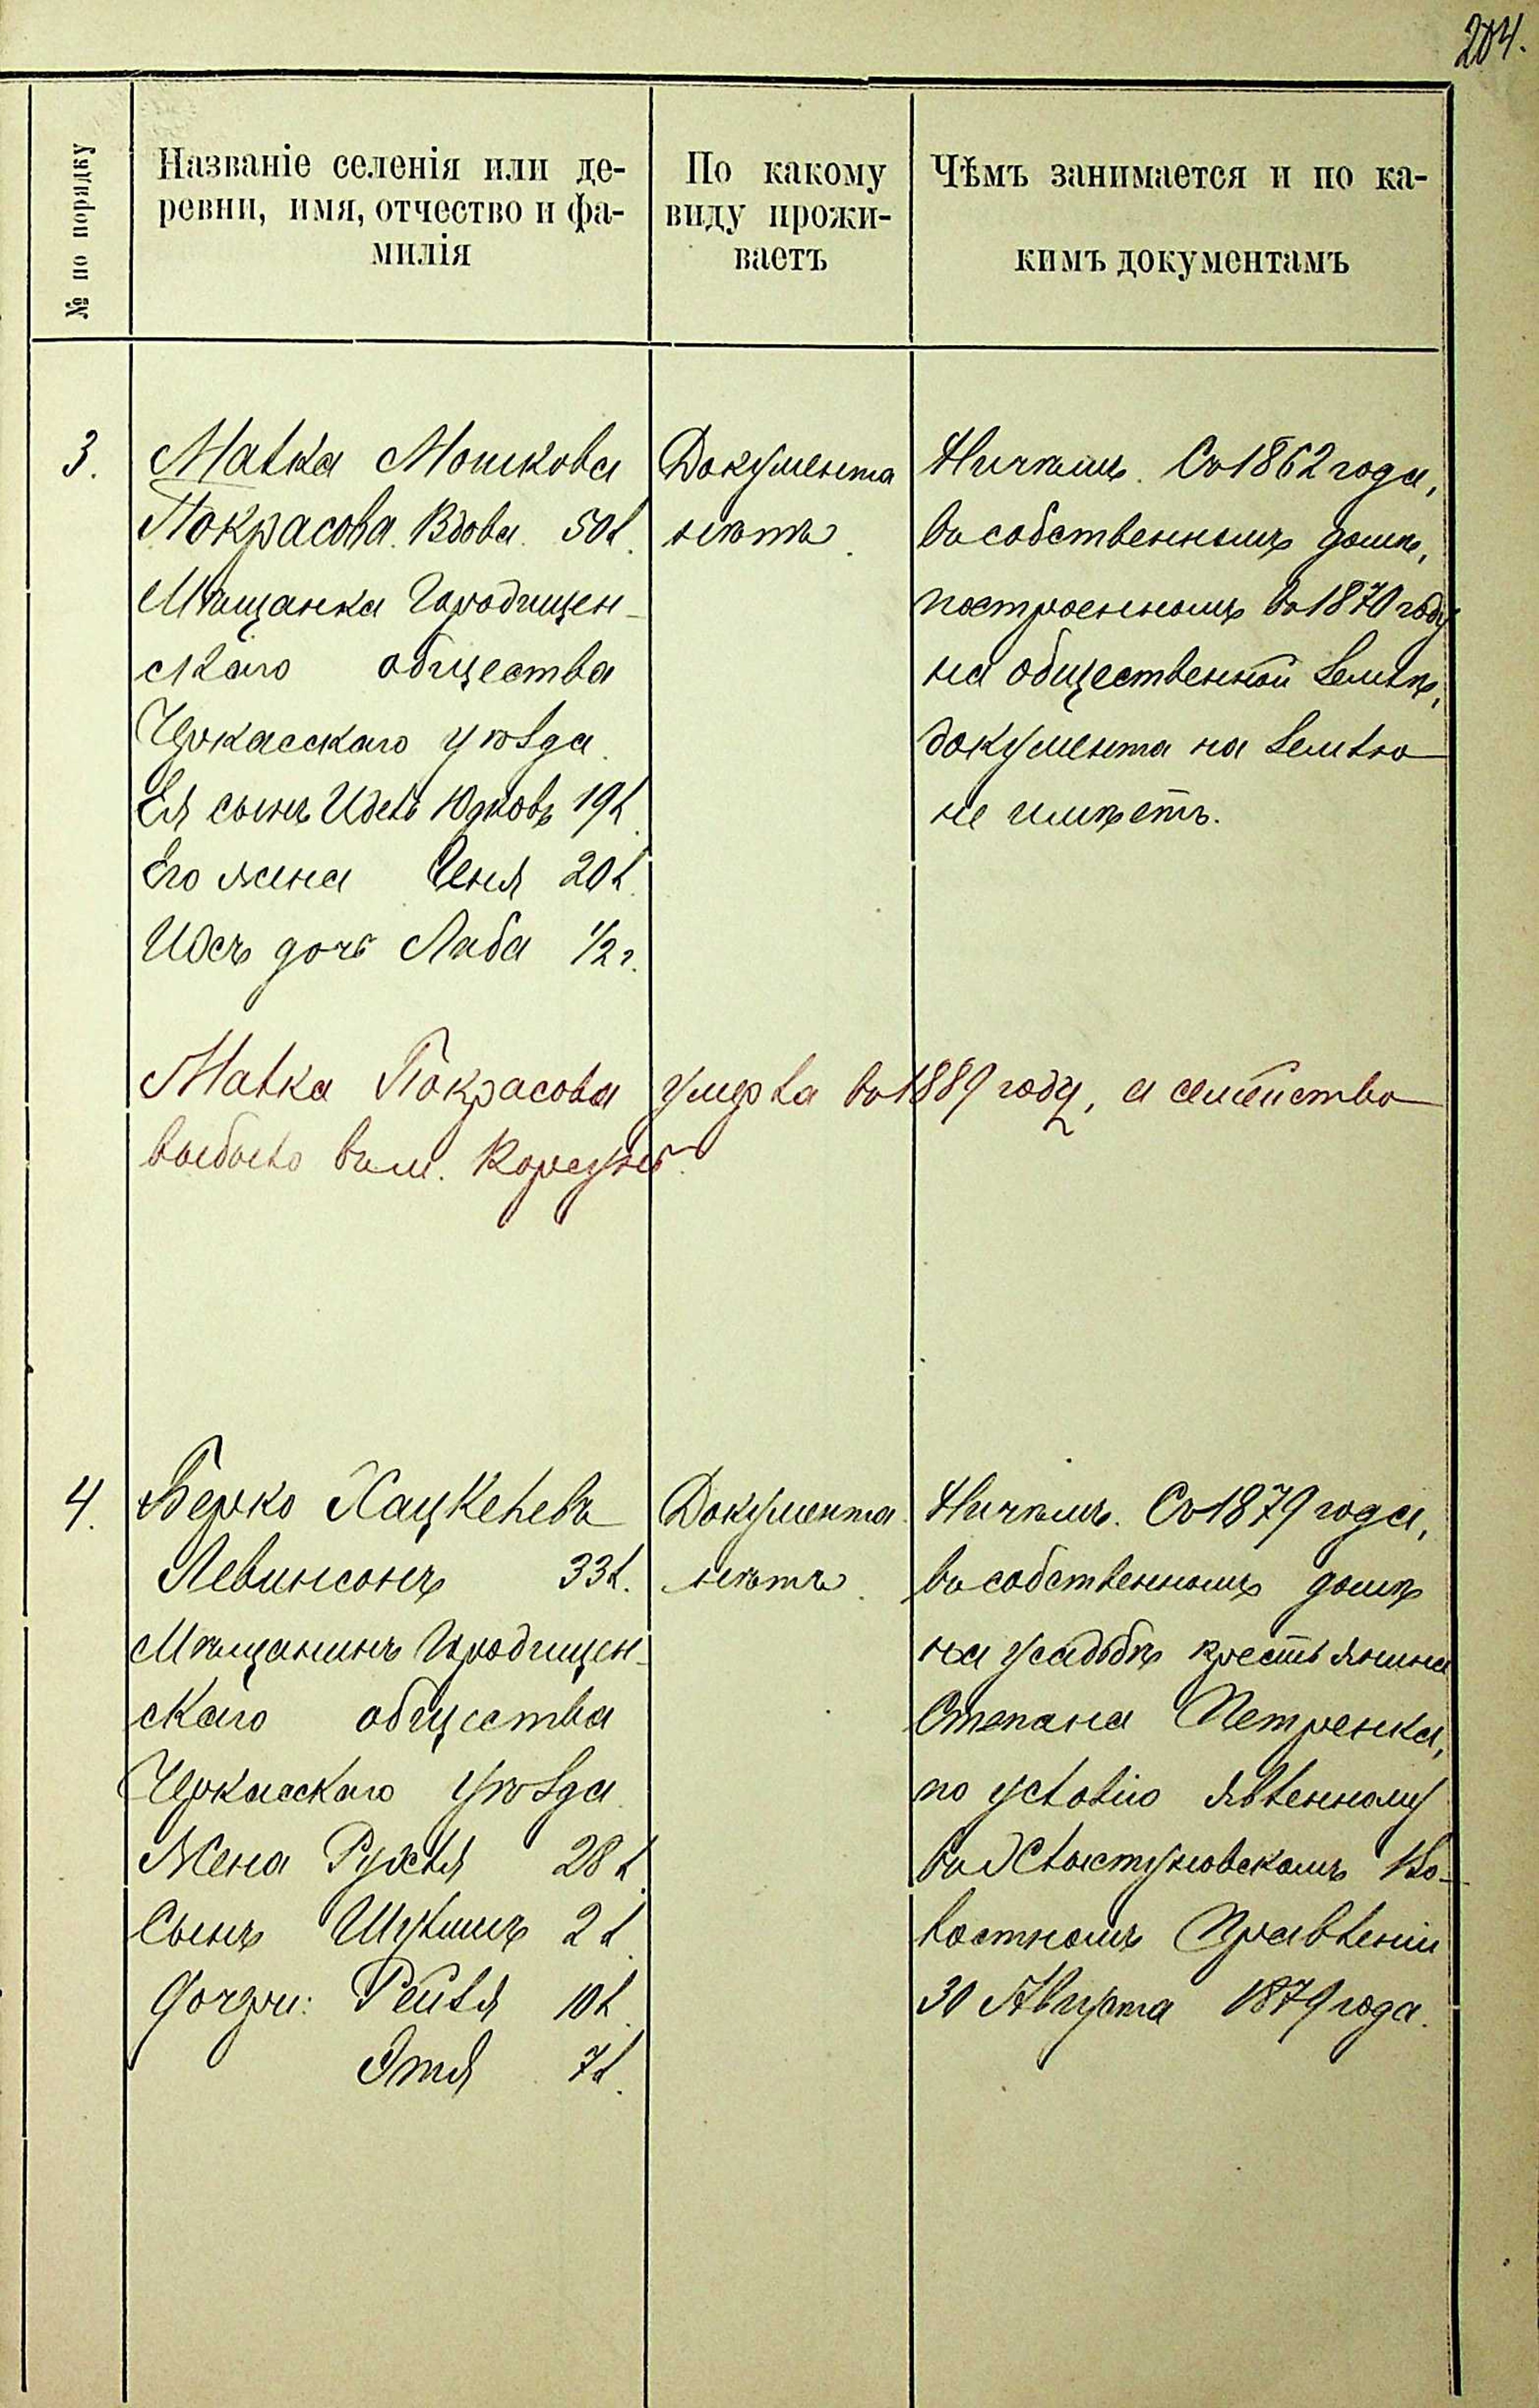 204.
№ по порядку
Названіе селенія или де-
ревни, имя, отчество и фа-
милія
По какому
виду прожи-
ваетъ
Чѣмъ занимается и по ка-
кимъ документамъ
3.
Малка Мошкова
Покрасова. Вдова. 50 л.
Мѣщанка Городищен-
скаго общества
Черкасскаго уѣзда.
Ея сынъ Идель Юдковъ 19 л.
Его жена Сеня 20 л.
Ихъ дочь Либа 1/2 г.
Документа
нѣтъ.
Ничѣмъ. Съ 1862 года,
въ собственномъ домѣ,
построенномъ въ 1870 году
на общественной землѣ,
документа на землю
не имѣетъ.
Малка Покрасова умерла въ 1889 году, а семейство
выбыло въ м. Корсунь.
4.
Берко Хацкелевъ
Левинсонъ 33 л.
Мѣщанинъ Городищен-
скаго общества
Черкасскаго уѣзда.
Жена Рухля 28 л.
Сынъ Шулимъ 2 л.
Дочери: Рейзя 10 л.
Этя 7 л.
Документа
нѣтъ.
Ничѣмъ. Съ 1879 года,
въ собственномъ домѣ
на усадьбѣ крестьянина
Степана Петренка,
по условію явленному
въ Хлыстуновскомъ Во-
лостномъ Правленіи
30 Августа 1879 года.